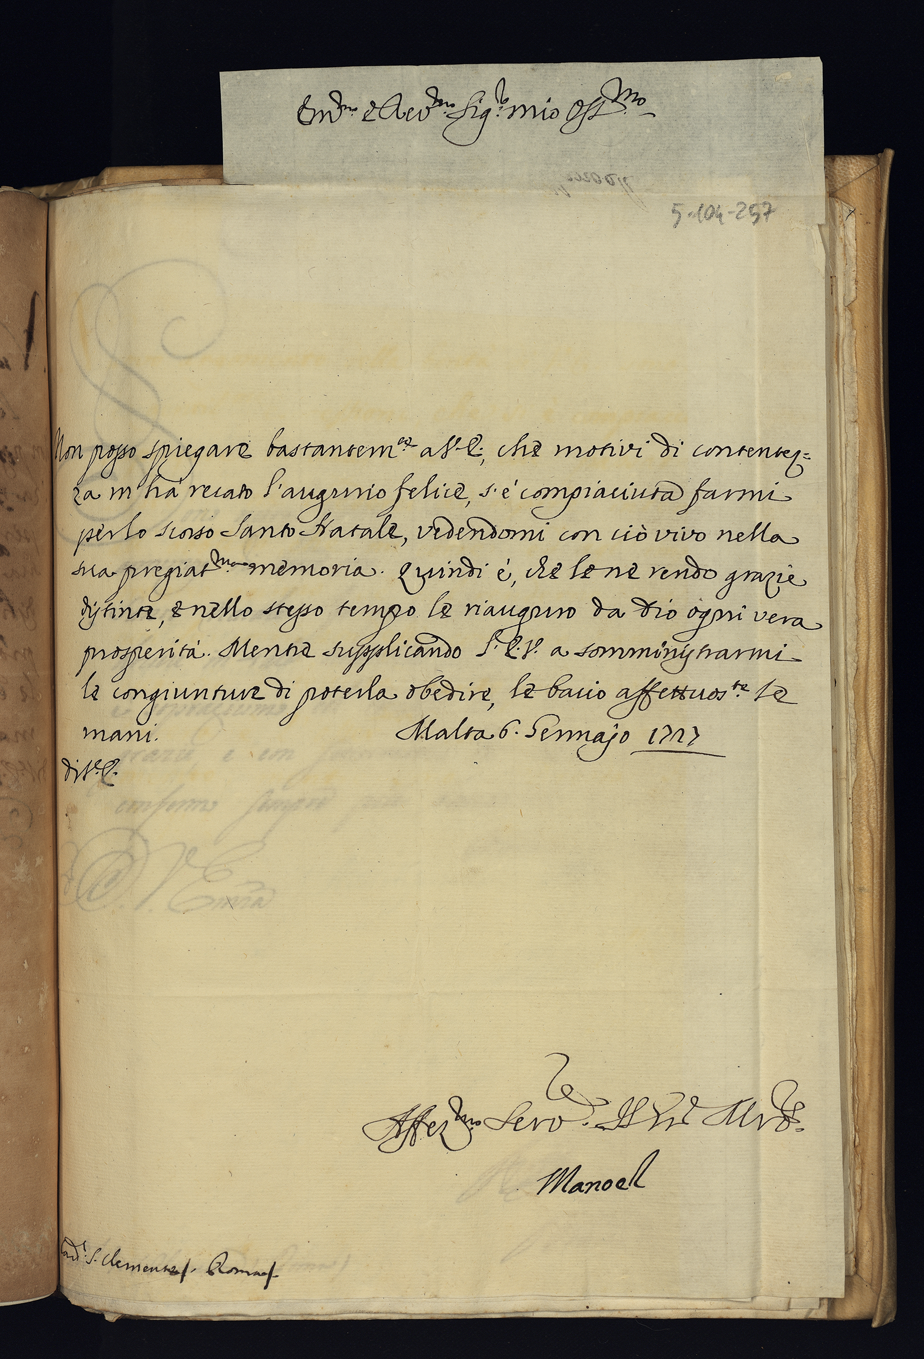 Em.mo e Rev.mo Sig.re mio Oss.mo
5-104-257
Non posso spiegare bastantem.te a V.E., che motivi di contentez=
za m'hà recato l'augurio felice, s'è compiaciuta farmi
per lo scorso Santo Natale, vedendomi con ciò vivo nella
sua pregiat.ma memoria. Quindi è, che le ne rendo grazie
distinte, e nello stesso tempo le riauguro da Dio ogni vera
prosperità. Mentre supplicando l'E.V. a somministrarmi
le congiunture di poterla obedire, le bacio affettuos.te le
mani. Malta 6. Gennajo 1727
di V.E.
Affez.mo Serv.re
Manoel
Card. S. Clemente. Roma